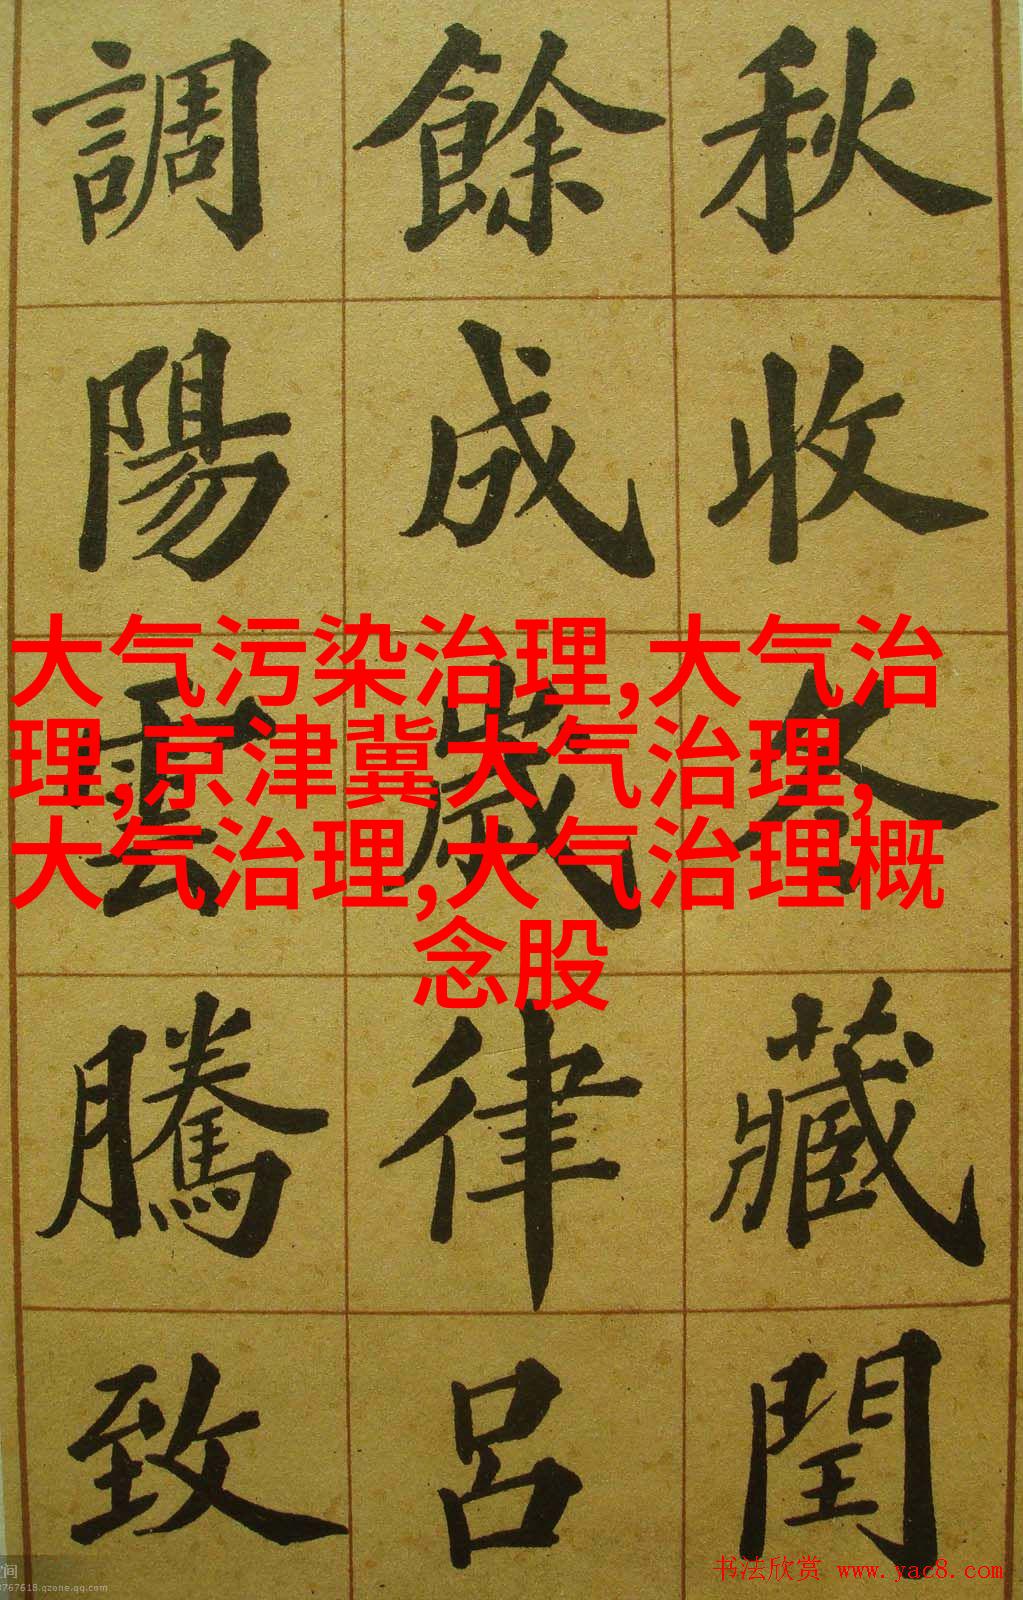 秋收冬藏閏
餘成歲律呂
調陽雲騰致
大气污染治理,大气治
理,京津冀大气治理,
大气治理,大气治理概
念股
书法欣赏 www.yac8.com
空间
3767618.qzone.qq.com